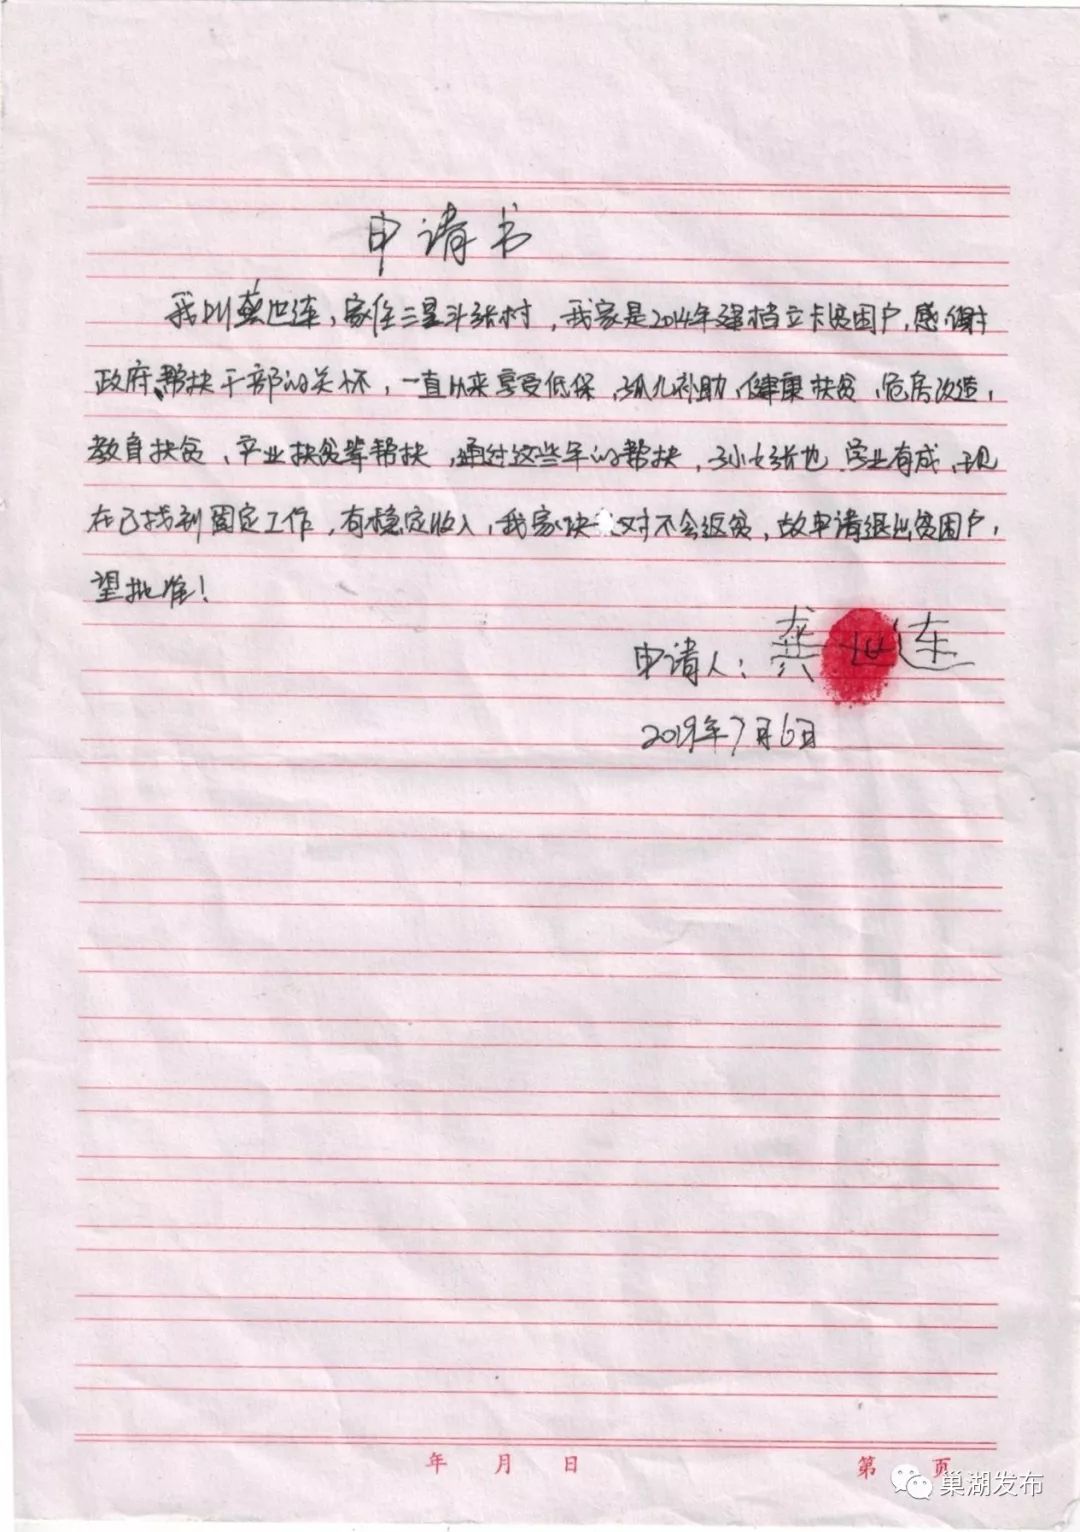 申请书
我叫龚世连，家住三星斗张村，我家是2014年建档立卡贫困户，感谢
政府、帮扶干部的关怀，一直以来享受低保、孤儿补助、健康扶贫、危房改造、
教育扶贫、产业扶贫等帮扶，通过这些年的帮扶，孙女张也学业有成，现
在已找到固定工作，有稳定收入，我家决对不会返贫，故申请退出贫困户，
望批准！
申请人：龚世连
2019年7月6日
年 月 日 第 页
巢湖发布